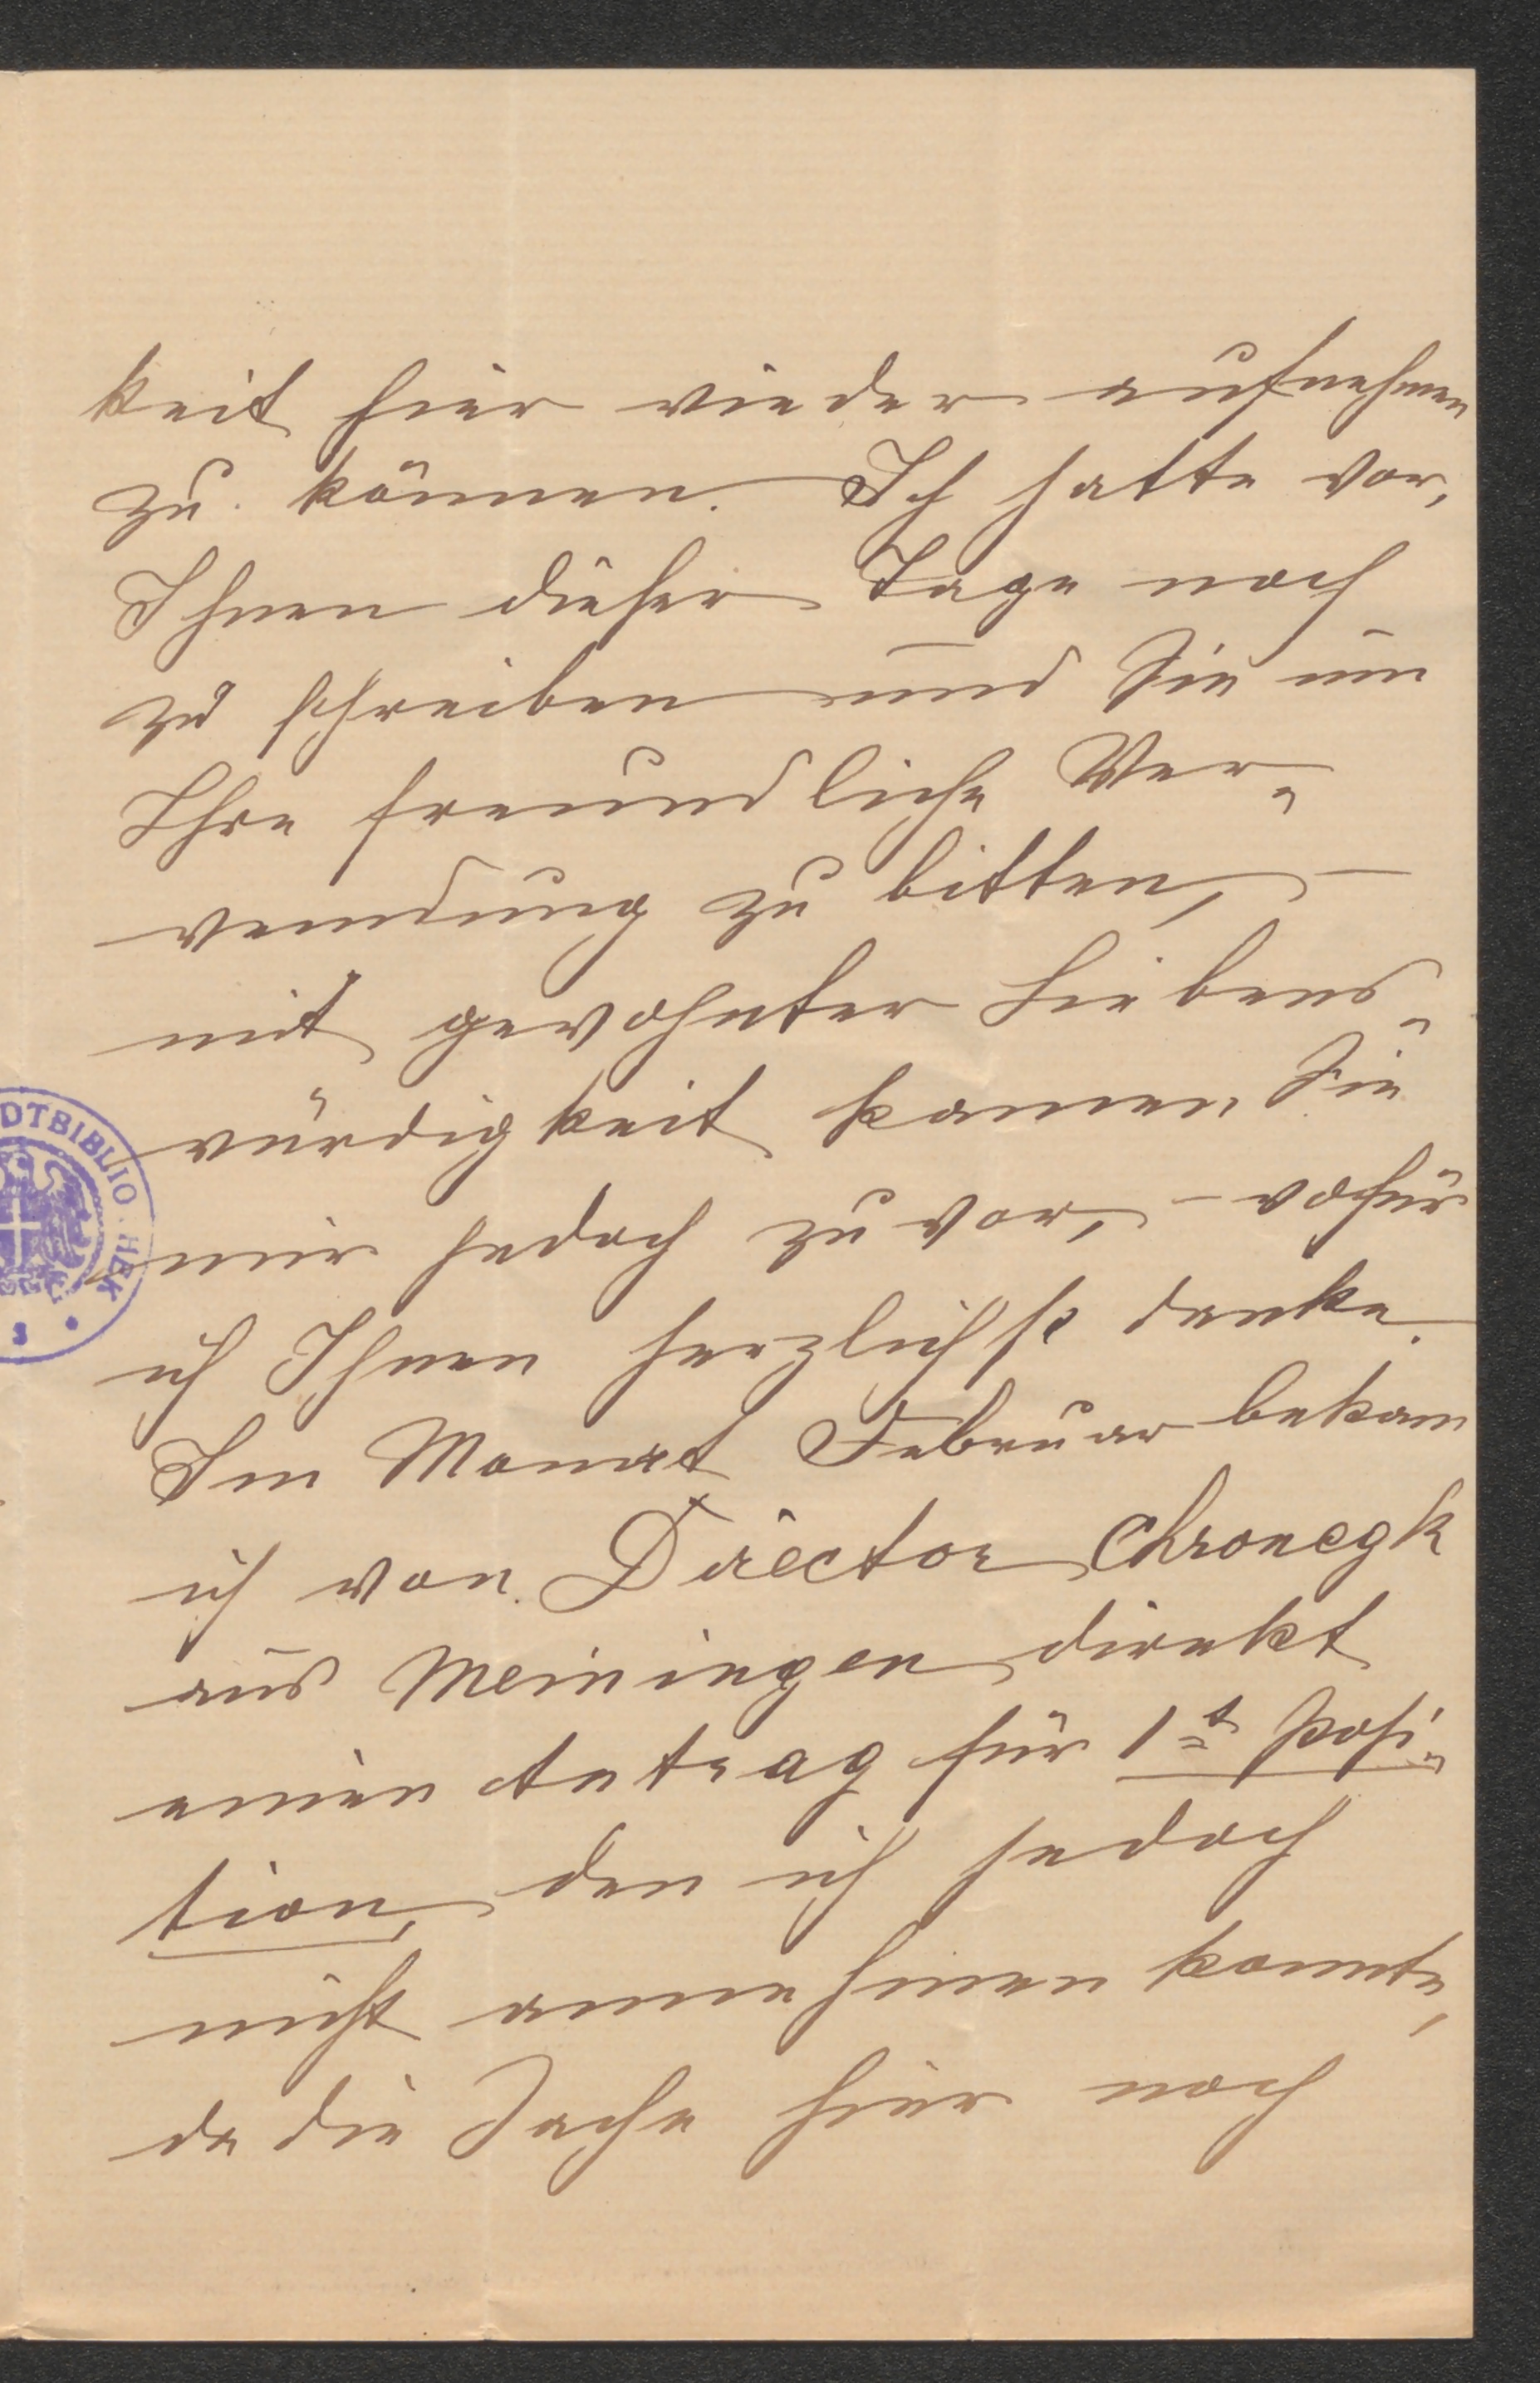 keit hier wieder aufnehmen
zu können. Ich hatte vor,
Ihnen dieser Tage noch
zu schreiben und Sie um
Ihre freundliche Ver-
wendung zu bitten, –
mit gewohnter Liebens-
würdigkeit kamen Sie
mir jedoch zuvor, – wofür
ich Ihnen herzlichst danke.
Im Monat Februar bekam
ich von Director Chronegk
aus Meiningen direkt
einen Antrag für 1t Posi-
tion, den ich jedoch
nicht annehmen konnte,
da die Sache hier noch
DTBIBLIOTHEK